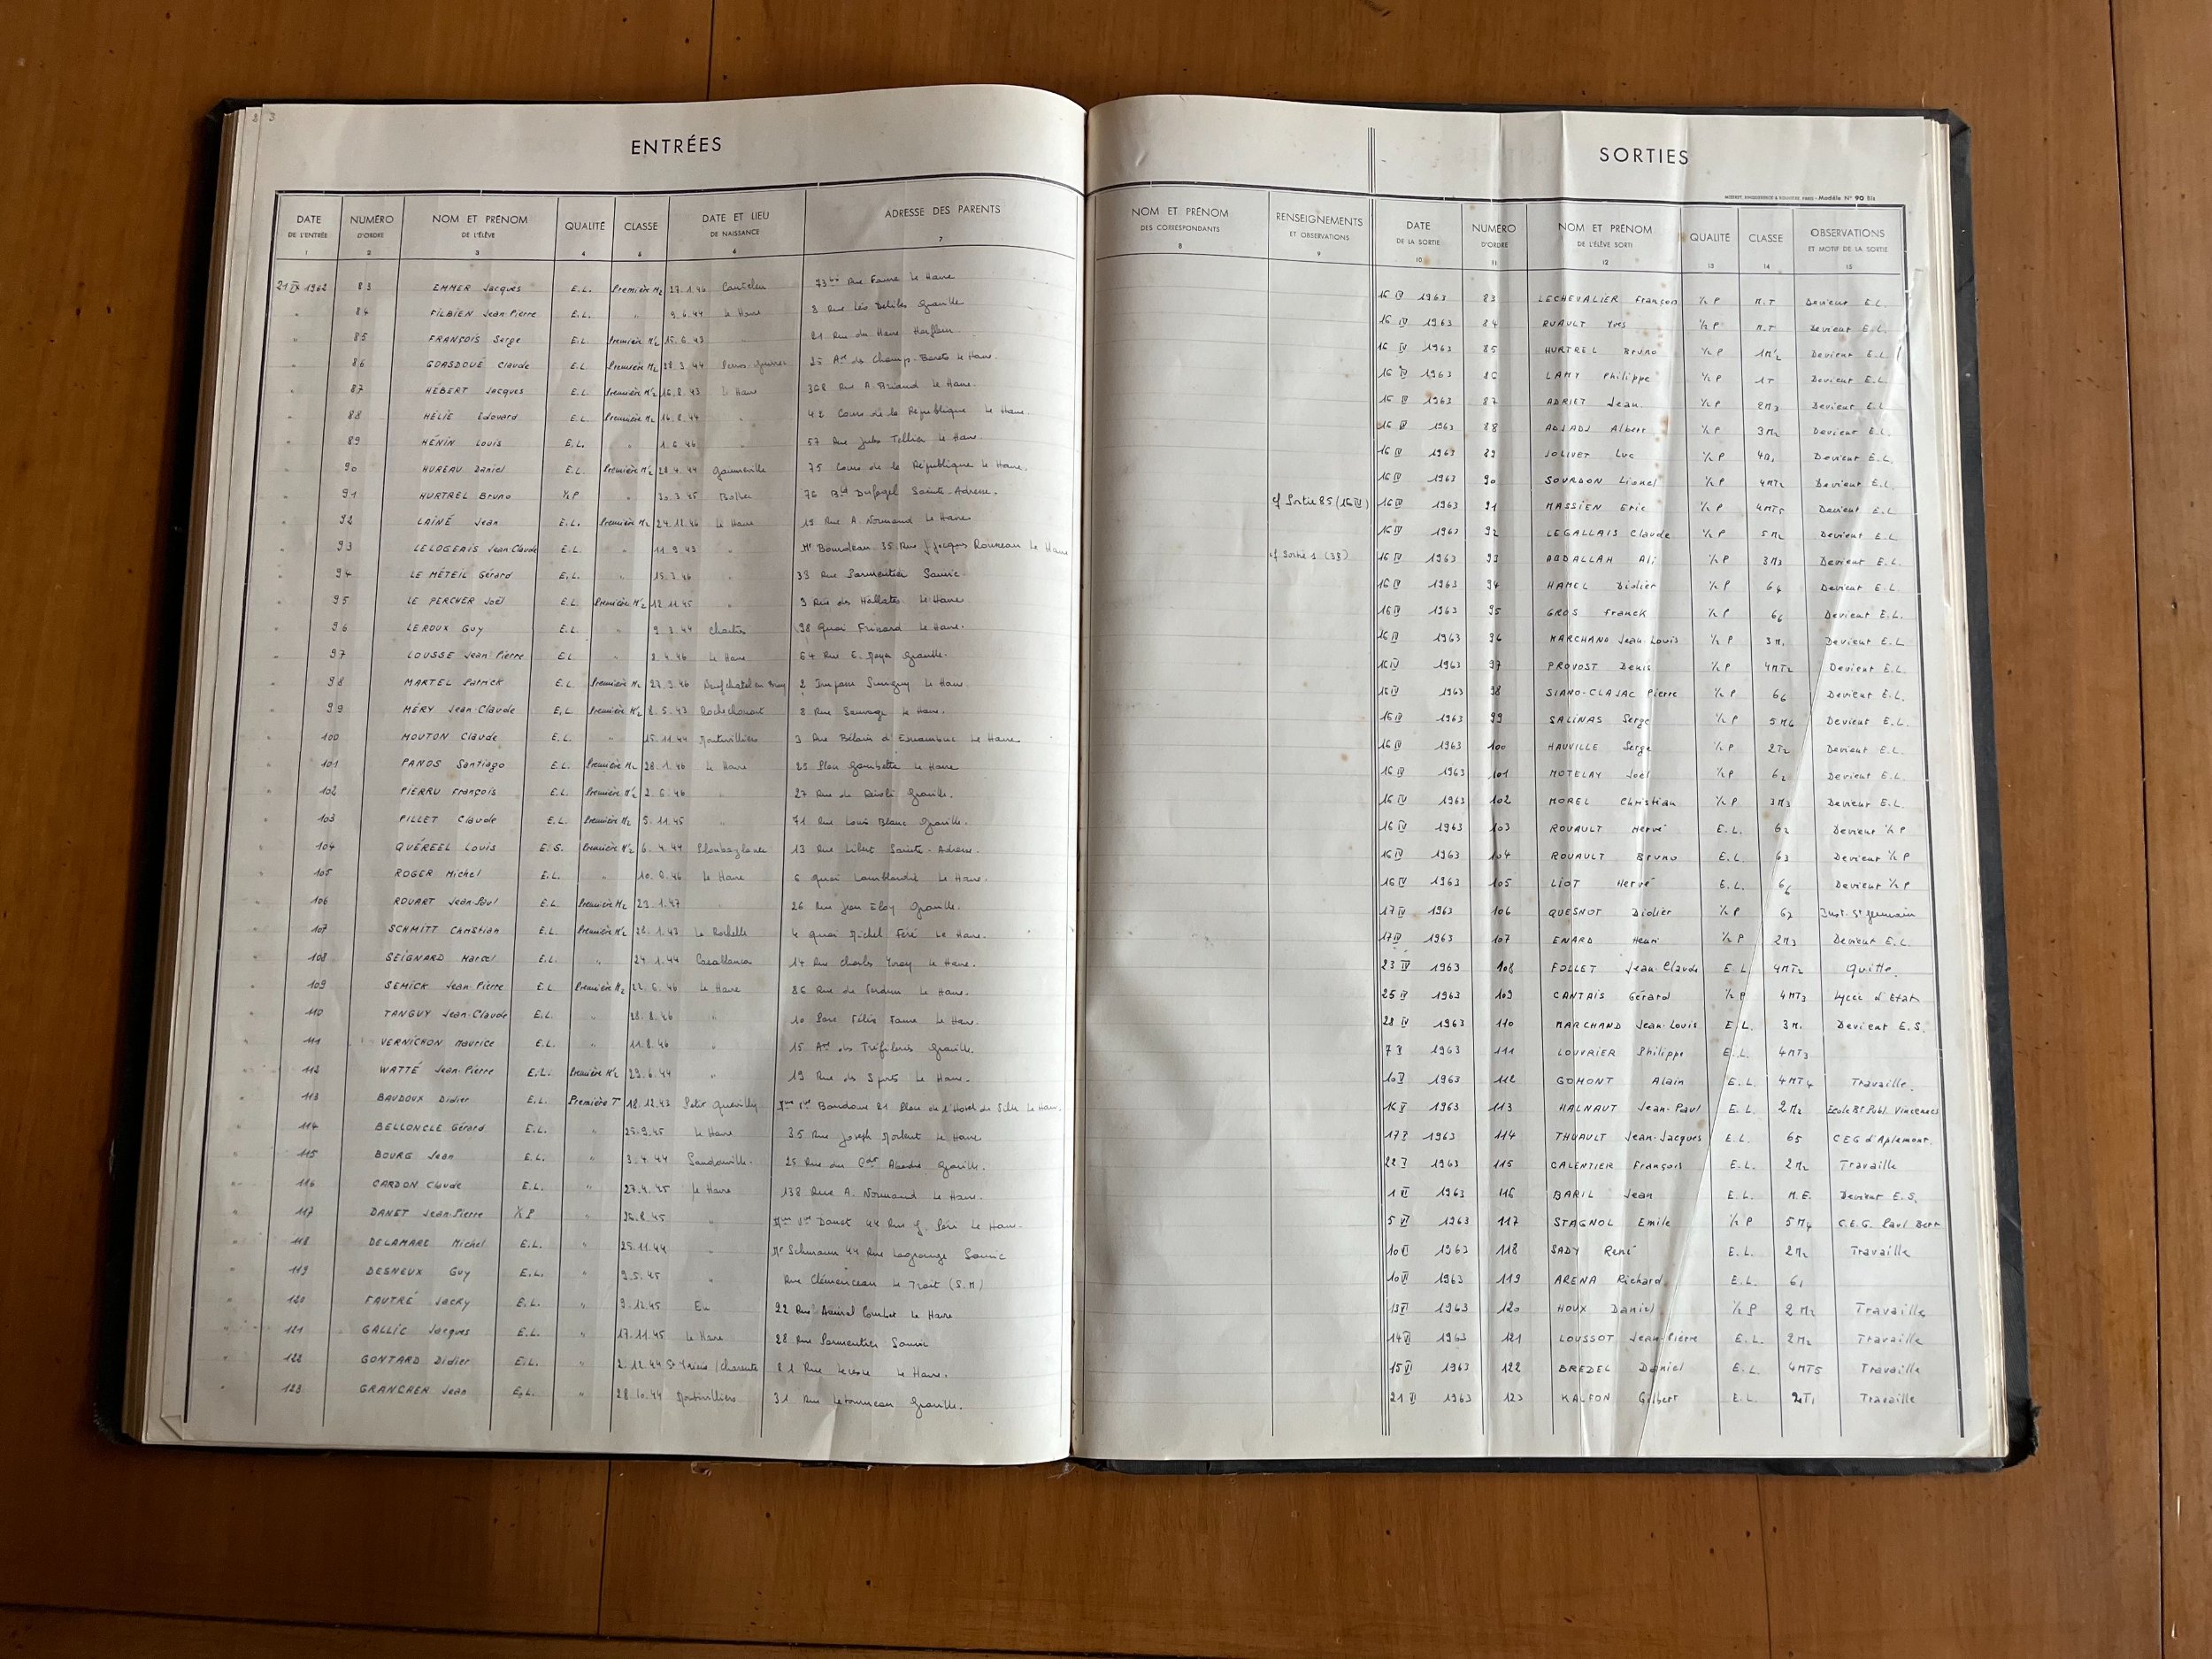 ENTRÉES
DATE DE L'ENTRÉE 1 NUMÉRO D'ORDRE 2 NOM ET PRÉNOM DE L'ÉLÈVE 3 QUALITÉ 4 CLASSE 5 DATE ET LIEU DE NAISSANCE 6 ADRESSE DES PARENTS 7
21 IX 1962 83 EMMER Jacques E.L. Première M2 27.1.46 73 bis Rue Faure Le Havre
" 84 FILBIEN Jean-Pierre E.L. " 9.6.44 Le Havre 8 Rue Léo Delibes Graville
" 85 FRANÇOIS Serge E.L. Première M'2 15.6.43 " 21 Rue du Havre Harfleur
" 86 GOASDOUÉ Claude E.L. Première M2 28.3.44 Perros-Guirrec 25 Av. des Champs-Barets Le Havre.
" 87 HÉBERT Jacques E.L. Première M'2 16.8.43 Le Havre 368 Rue A. Briand Le Havre.
" 88 HÉLIE Edouard E.L. Première M2 16.8.44 " 42 Cours de la République Le Havre.
" 89 HÉNIN Louis E.L. " 1.6.46 " 57 Rue Jules Tellier Le Havre
" 90 HUREAU Daniel E.L. Première M'2 28.4.44 Gainneville 75 Cours de la République Le Havre.
" 91 HURTREL Bruno ½P " 30.3.45 Bolbec 76 Bd Dufayel Sainte-Adresse.
" 92 LAINÉ Jean E.L. Première M2 24.12.46 Le Havre 19 Rue A. Normand Le Havre
" 93 LELOGEAIS Jean-Claude E.L. " 11.9.43 " Mr Bourdeau 35 Rue J. Jacques Rousseau Le Havre
" 94 LE MÉTEIL Gérard E.L. " 15.3.46 " 33 Rue Parmentier Sanvic
" 95 LE PERCHER Joël E.L. Première M'2 12.11.45 " 9 Rue des Hallates Le Havre
" 96 LEROUX Guy E.L. " 9.3.44 Chartres 98 Quai Frissard Le Havre.
" 97 LOUSSE Jean-Pierre E.L. " 2.4.46 Le Havre 64 Rue E. Graville.
" 98 MARTEL Patrick E.L. Première M2 27.9.46 Neufchatel en Bray 2 Impasse Le Havre
" 99 MÉRY Jean-Claude E.L. Première M'2 8.5.43 Rochechouart 8 Rue Sauvage Le Havre.
" 100 MOUTON Claude E.L. " 15.11.44 Montivilliers 3 Rue Bélain d'Esnambuc Le Havre
" 101 PANOS Santiago E.L. Première M2 28.1.46 Le Havre 25 Place Gambetta Le Havre
" 102 PIERRU François E.L. Première M'2 2.6.46 " 27 Rue de Rivoli Graville.
" 103 PILLET Claude E.L. Première M2 5.11.45 " 71 Rue Louis Blanc Graville.
" 104 QUÉREEL Louis E.S. Première M'2 6.4.44 13 Rue Libert Sainte-Adresse.
" 105 ROGER Michel E.L. " 10.8.46 Le Havre 6 Quai Lamblardie Le Havre.
" 106 ROUART Jean-Paul E.L. Première M2 23.1.47 " 26 Rue Jean Eloy Graville.
" 107 SCHMITT Christian E.L. Première M'2 28.1.43 La Rochelle 4 Quai Michel Féré Le Havre.
" 108 SEIGNARD Marcel E.L. " 24.1.44 Casablanca 14 Rue Charles Le Havre.
" 109 SEMICK Jean-Pierre E.L. Première M2 22.6.46 Le Havre 86 Rue de Verdun Le Havre.
" 110 TANGUY Jean-Claude E.L. " 28.8.46 " 10 Félix Faure Le Havre.
" 111 VERNICHON Maurice E.L. " 11.8.46 " 15 Av. des Tréfileries Graville.
" 112 WATTÉ Jean-Pierre E.L. Première M'2 29.6.44 " 19 Rue des Sports Le Havre.
" 113 BAUDOUX Didier E.L. Première T 18.12.43 Petit Quevilly Mme Vve Baudoux 21 Place de l'Hotel de Ville Le Havre.
" 114 BELLONCLE Gérard E.L. " 25.9.45 Le Havre 35 Rue Joseph Morlent Le Havre
" 115 BOURG Jean E.L. " 3.4.44 Sandouville. 25 Rue du Cdt Abadie Graville.
" 116 CARDON Claude E.L. " 27.4.45 Le Havre 138 Rue A. Normand Le Havre.
" 117 DANET Jean-Pierre ½P " 26.8.45 " Mme Vve Danet 44 Rue G. Péri Le Havre.
" 118 DELAMARE Michel E.L. " 25.11.44 " Mr Schmann 44 Rue Lagrange Sanvic
" 119 DESNEUX Guy E.L. " 9.5.45 " Rue Clémenceau Le Trait (S.M)
" 120 FAUTRÉ Jacky E.L. " 9.12.45 Eu 22 Rue Amiral Courbet Le Havre
" 121 GALLIC Jacques E.L. " 17.11.45 Le Havre 28 Rue Parmentier Sanvic
" 122 GONTARD Didier E.L. " 2.12.44 St Yrieix (Charente) 81 Rue Lecesne Le Havre.
" 123 GRANCHER Jean E.L. " 28.10.44 Montivilliers 31 Rue Letourneau Graville.
SORTIES
Modèle N° 90 Bis
NOM ET PRÉNOM DES CORRESPONDANTS 8 RENSEIGNEMENTS ET OBSERVATIONS 9 DATE DE LA SORTIE 10 NUMÉRO D'ORDRE 11 NOM ET PRÉNOM DE L'ÉLÈVE SORTI 12 QUALITÉ 13 CLASSE 14 OBSERVATIONS ET MOTIF DE LA SORTIE 15
16 IV 1963 83 LECHEVALIER François ½P M.T Devient E.L.
16 IV 1963 84 RUAULT Yves ½P M.T Devient E.L.
16 IV 1963 85 HURTREL Bruno ½P 1M'2 Devient E.L.
16 IV 1963 86 LAMY Philippe ½P 1T Devient E.L.
16 IV 1963 87 ADRIET Jean ½P 2M3 Devient E.L.
16 IV 1963 88 ADJADJ Albert ½P 3M2 Devient E.L.
16 IV 1963 89 JOLIVET Luc ½P 4B1 Devient E.L.
16 IV 1963 90 SOURDON Lionel ½P 4MT2 Devient E.L.
cf Sortie 85 (16 IV) 16 IV 1963 91 MASSIEN Eric ½P 4MT5 Devient E.L.
16 IV 1963 92 LEGALLAIS Claude ½P 5M2 Devient E.L.
cf Sortie 1 (38) 16 IV 1963 93 ABDALLAH Ali ½P 3M3 Devient E.L.
16 IV 1963 94 HAMEL Didier ½P 64 Devient E.L.
16 IV 1963 95 GROS Franck ½P 66 Devient E.L.
16 IV 1963 96 MARCHAND Jean-Louis ½P 3M1 Devient E.L.
16 IV 1963 97 PROVOST Denis ½P 4MT2 Devient E.L.
16 IV 1963 98 SIANO-CLAJAC Pierre ½P 66 Devient E.L.
16 IV 1963 99 SALINAS Serge ½P 5M6 Devient E.L.
16 IV 1963 100 HAUVILLE Serge ½P 2T2 Devient E.L.
16 IV 1963 101 MOTELAY Joël ½P 62 Devient E.L.
16 IV 1963 102 MOREL Christian ½P 3M3 Devient E.L.
16 IV 1963 103 ROUAULT Hervé E.L. 62 Devient ½P
16 IV 1963 104 ROUAULT Bruno E.L. 63 Devient ½P
16 IV 1963 105 LIOT Hervé E.L. 66 Devient ½P
17 IV 1963 106 QUESNOT Didier ½P 67 Inst. St Germain
17 IV 1963 107 ENARD Henri ½P 2M3 Devient E.L.
23 IV 1963 108 FOLLET Jean-Claude E.L. 4MT2 Quitte.
25 IV 1963 109 CANTAIS Gérard ½P 4MT3 Lycée d'Etat
28 IV 1963 110 MARCHAND Jean-Louis E.L. 3M1 Devient E.S.
7 V 1963 111 LOUVRIER Philippe E.L. 4MT3
10 V 1963 112 GOMONT Alain E.L. 4MT4 Travaille.
16 V 1963 113 HALNAUT Jean-Paul E.L. 2M2 Ecole Bt Publ. Vincennes
17 V 1963 114 THUAULT Jean-Jacques E.L. 65 CEG d'Aplemont.
22 V 1963 115 CALENTIER François E.L. 2M2 Travaille
1 VI 1963 116 BARIL Jean E.L. M.E. Devient E.S.
5 VI 1963 117 STAGNOL Emile ½P 5M4 C.E.G. Paul Bert
10 VI 1963 118 SADY René E.L. 2M2 Travaille
10 VI 1963 119 ARENA Richard E.L. 61
13 VI 1963 120 HOUX Daniel ½P 2M2 Travaille
14 VI 1963 121 LOUSSOT Jean-Pierre E.L. 2M2 Travaille
15 VI 1963 122 BREDEL Daniel E.L. 4MT5 Travaille
21 VI 1963 123 KALFON Gilbert E.L. 2T1 Travaille